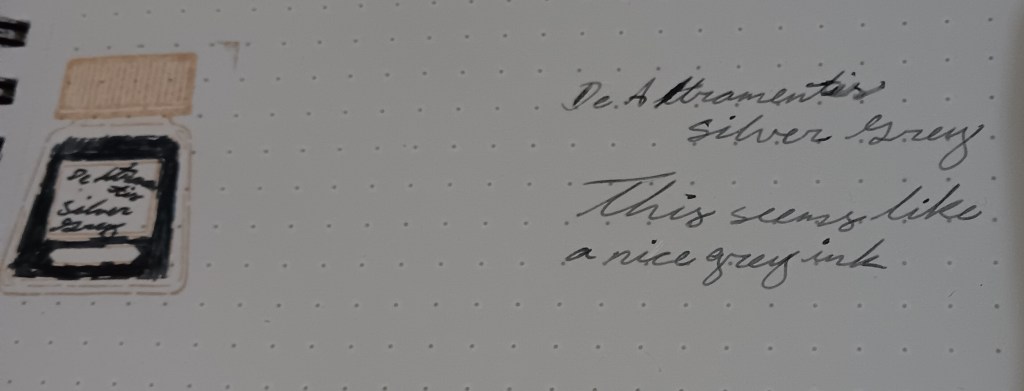 De Attramentis
Silver Grey
This seems like
a nice grey ink
De Attramen
tis
Silver
Grey